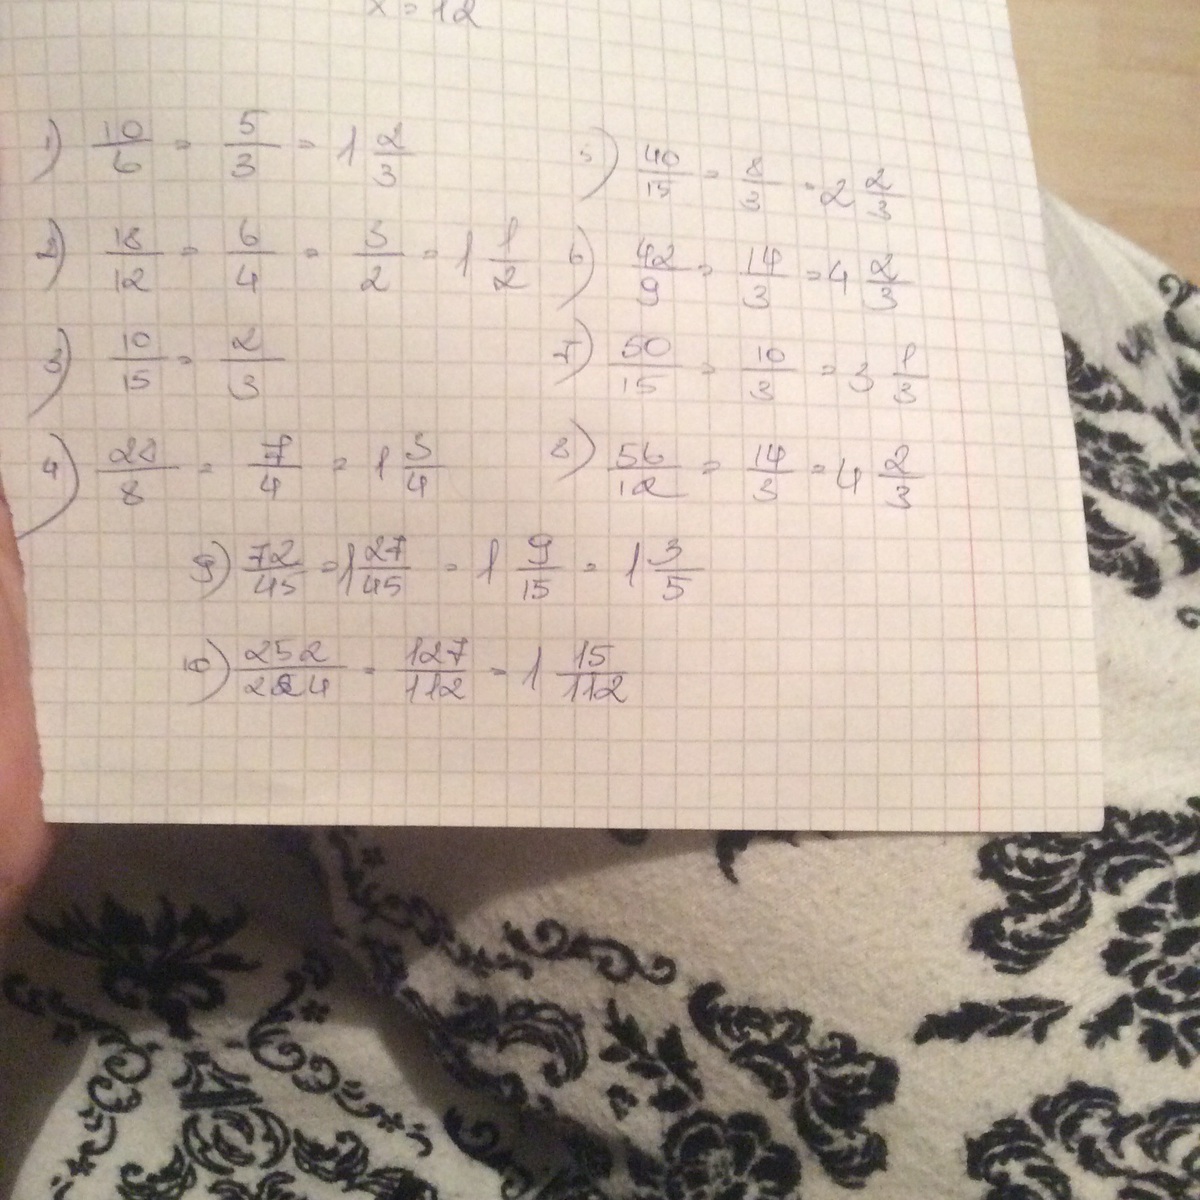 x = 12
1) 10/6 = 5/3 = 1 2/3
2) 18/12 = 6/4 = 3/2 = 1 1/2
3) 10/15 = 2/3
4) 28/8 = 7/4 = 1 3/4
5) 40/15 = 8/3 = 2 2/3
6) 42/9 = 14/3 = 4 2/3
7) 50/15 = 10/3 = 3 1/3
8) 56/12 = 14/3 = 4 2/3
9) 72/45 = 1 27/45 = 1 9/15 = 1 3/5
10) 252/224 = 127/112 = 1 15/112